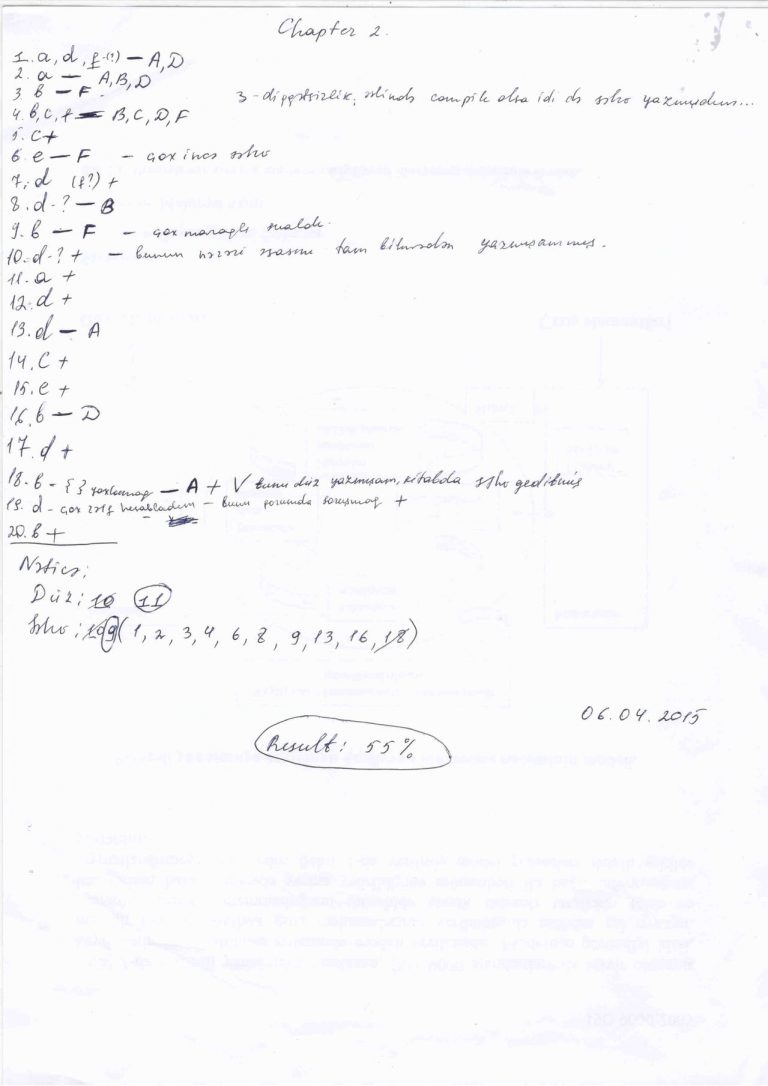 Chapter 2.
1. a, d, f (?) — A, D
2. a — A, B, D
3. b — F
3 - diqqətsizlik, əslində compile olsa idi də səhv yazmışdım...
4. b, c, f — B, C, D, F
5. C +
6. e — F - çox incə səhv
7. d (f?) +
8. d - ? — B
9. b — F - çox maraqlı sualdı.
10. d - ? + - bunun nəzəri əsasını tam bilmədən yazmışammış.
11. a +
12. d +
13. d — A
14. C +
15. e +
16. b — D
17. d +
18. b - { } — A + V bunu düz yazmışam, kitabda səhv gedibmiş
19. d - çox zəif hesabladım - bunu forumda soruşmaq +
20. b +
Nəticə:
Düz: 10 11
Səhv: 10 9 (1, 2, 3, 4, 6, 8, 9, 13, 16, 18)
06.04.2015
Result: 55%